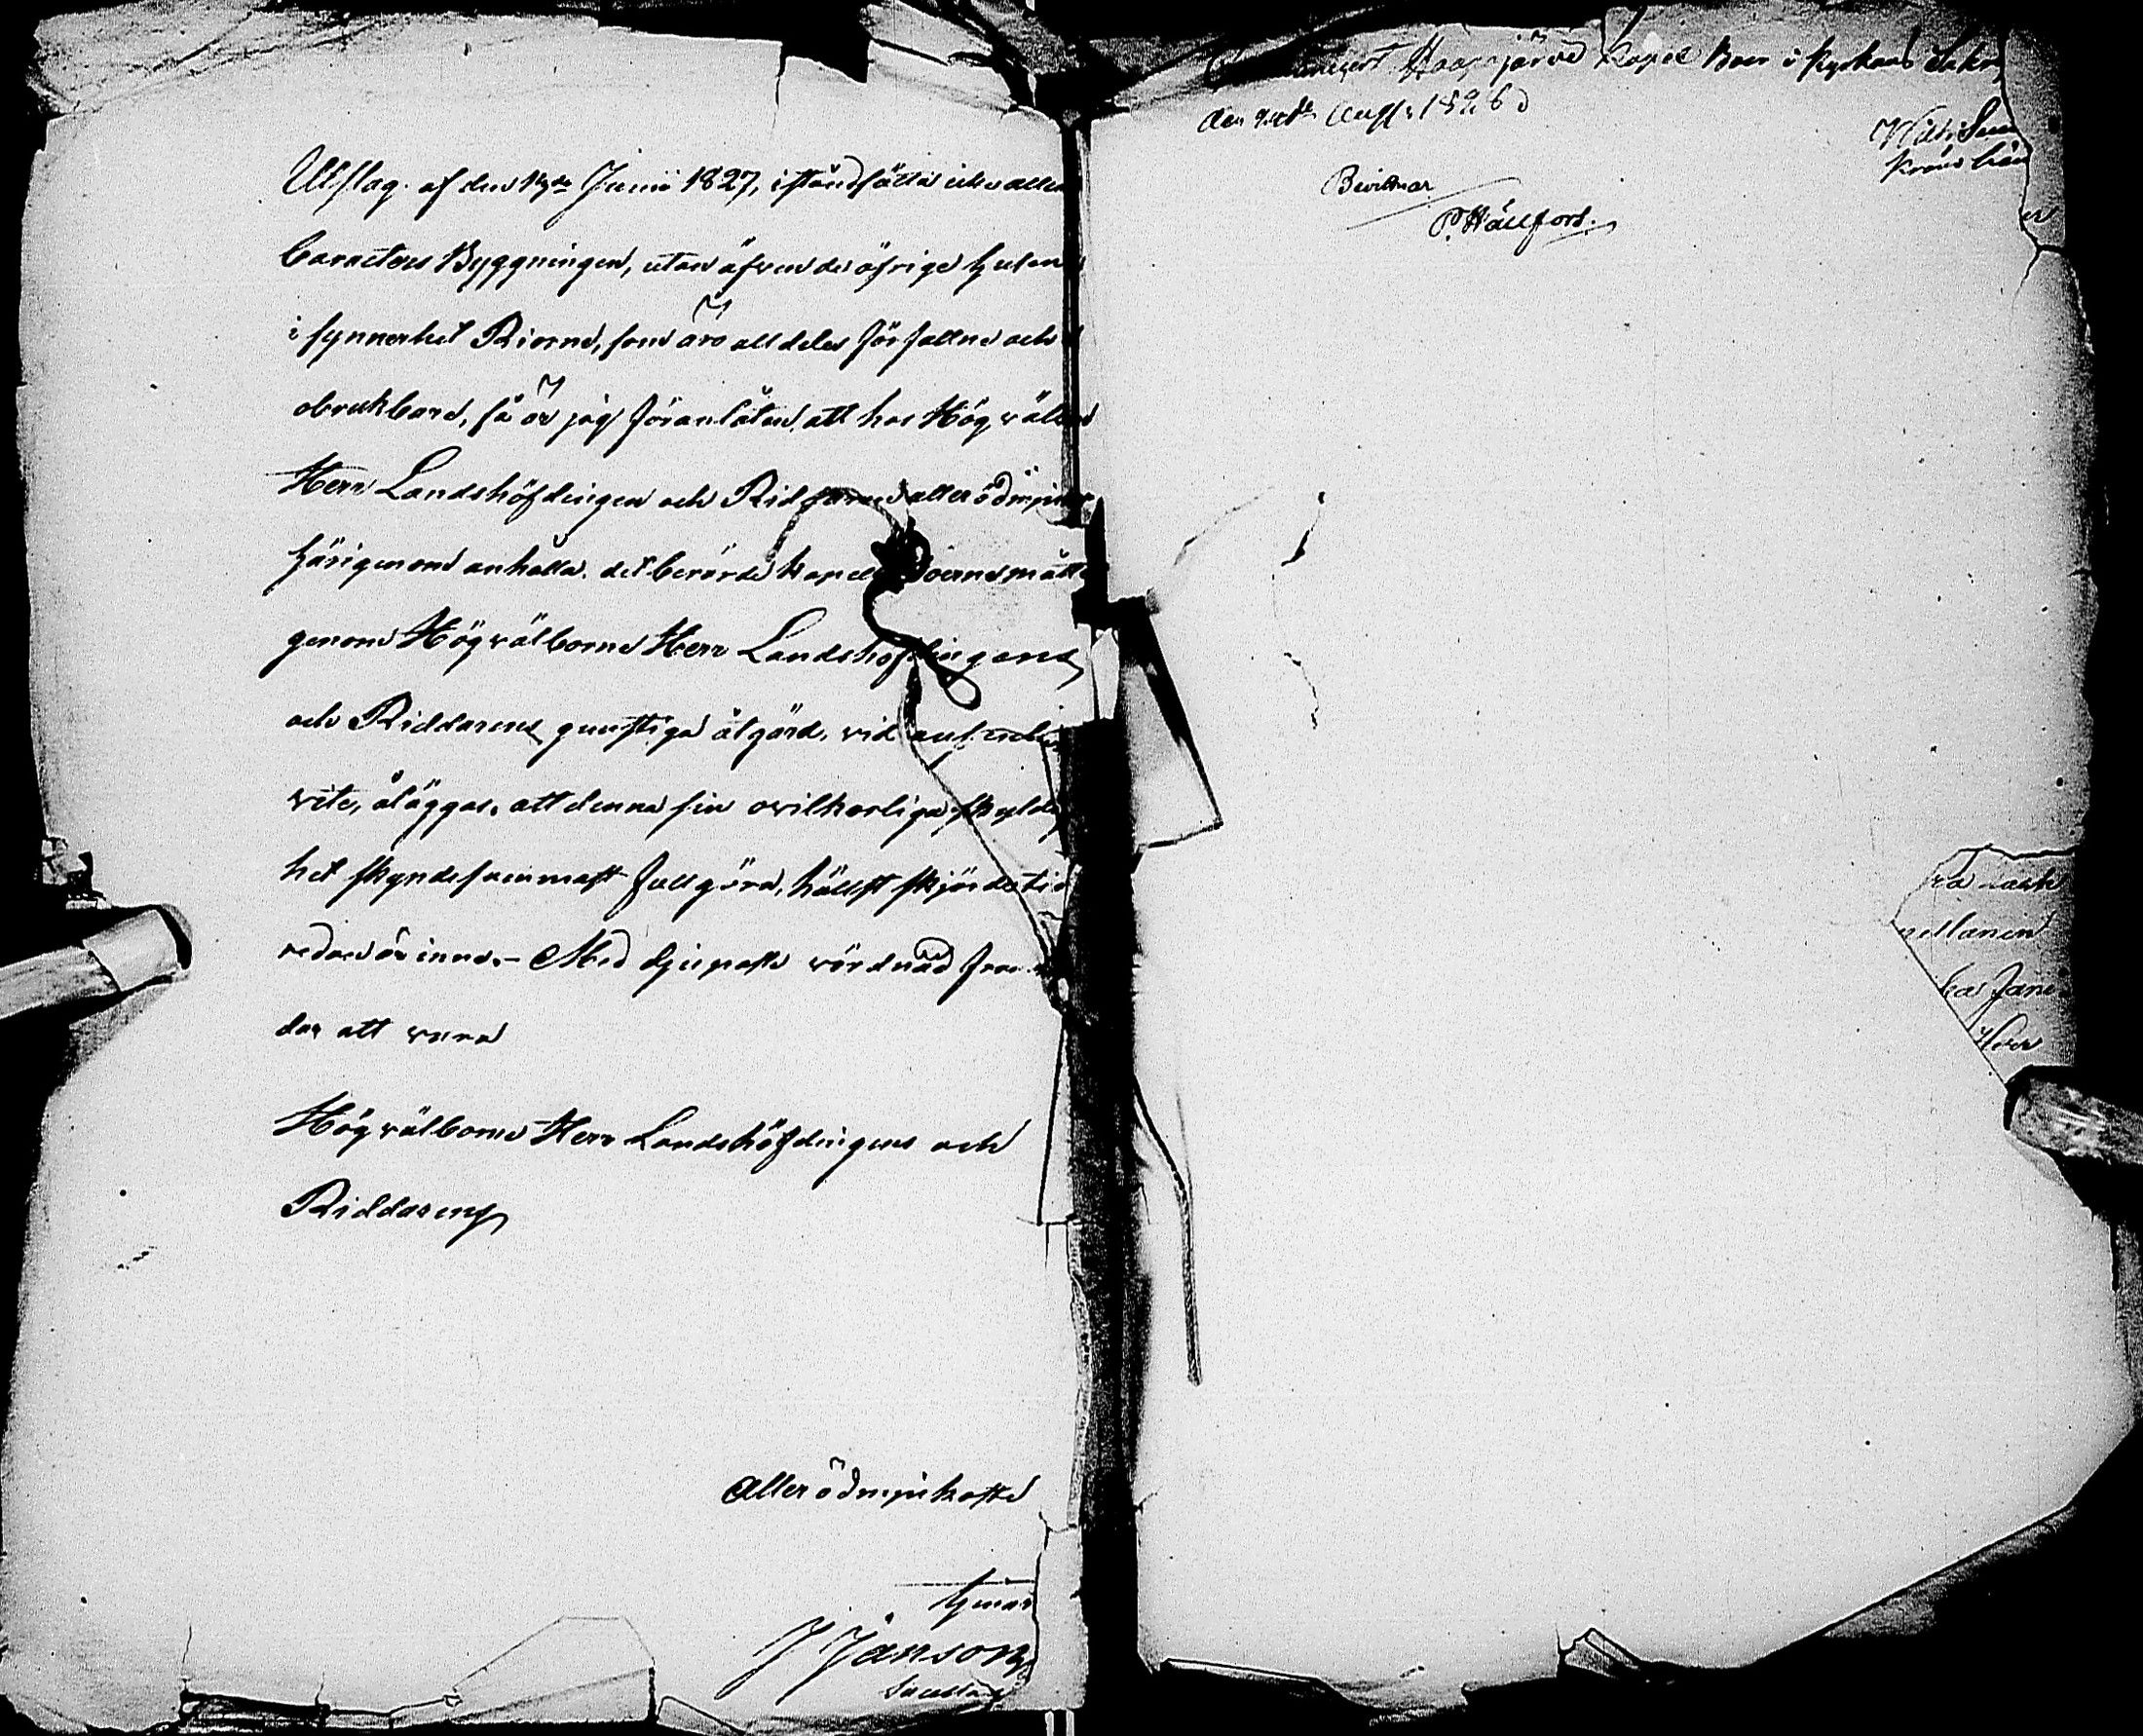 Utslag af den Junii 1827, iståndsätta icke allena
Caracters Byggningen, utan äfven de öfrige husen
i synnerhet Riorne, som äro alldeles förfallne och
obrukbare, så är jag föranlåten, att hos Högwälborne
Herr Landshöfdingen och Riddaren allerödmjukast
härigenom anhålla, det berörde Kapell Boerne måtte
genom Högwälborne Herr Landshöfdingens
och Riddarens gunstiga åtgärd, vid
wite, åläggas, att denna sin ovilkorliga skyldig
het skyndesammast fullgöra, hällst skjördetid
redan är inne. - Med djupaste wördnad fram
dar att vara
Högwälborne Herr Landshöfdingens och
Riddarens
Allerödmjukaste
tjenar
J Janson
Sacellan
Haapajärvi Kapell Boer i Kyrkans Sakr
den Aug. 1826
Bevittnar
P. Hällfors.
nellanin
ka Jane
Herr